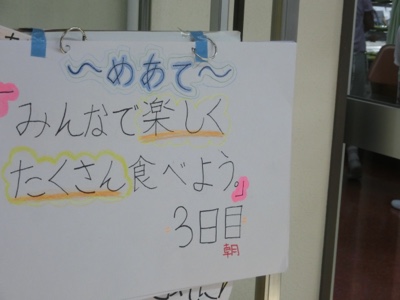 〜めあて〜
「みんなで楽しく
たくさん食べよう。」
3日目
朝